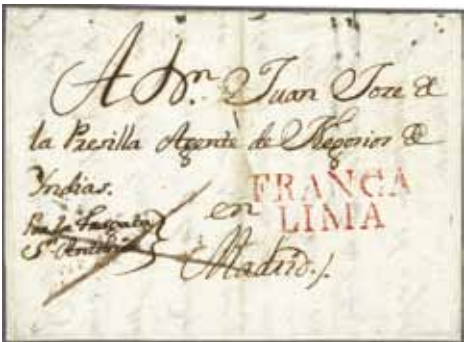 A Dn. Juan Joze de
la Presilla Agente de Negosios de
Yndias.
en
Madrid.
Por la Fragata
Sn. Antonio
FRANCA
LIMA